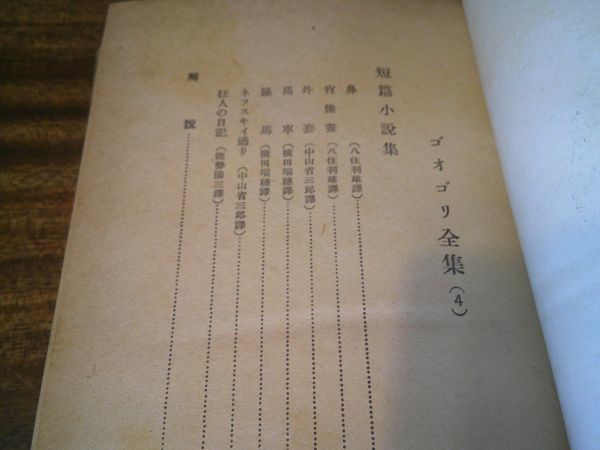 ゴオゴリ全集(4)
短篇小說集
鼻(八住利雄譯)
肖像畫(八住利雄譯)
外套(中山省三郎譯)
馬車(橫田瑞穗譯)
羅馬(橫田瑞穗譯)
ネフスキイ通り(中山省三郎譯)
狂人の日記(能勢陽三譯)
解說